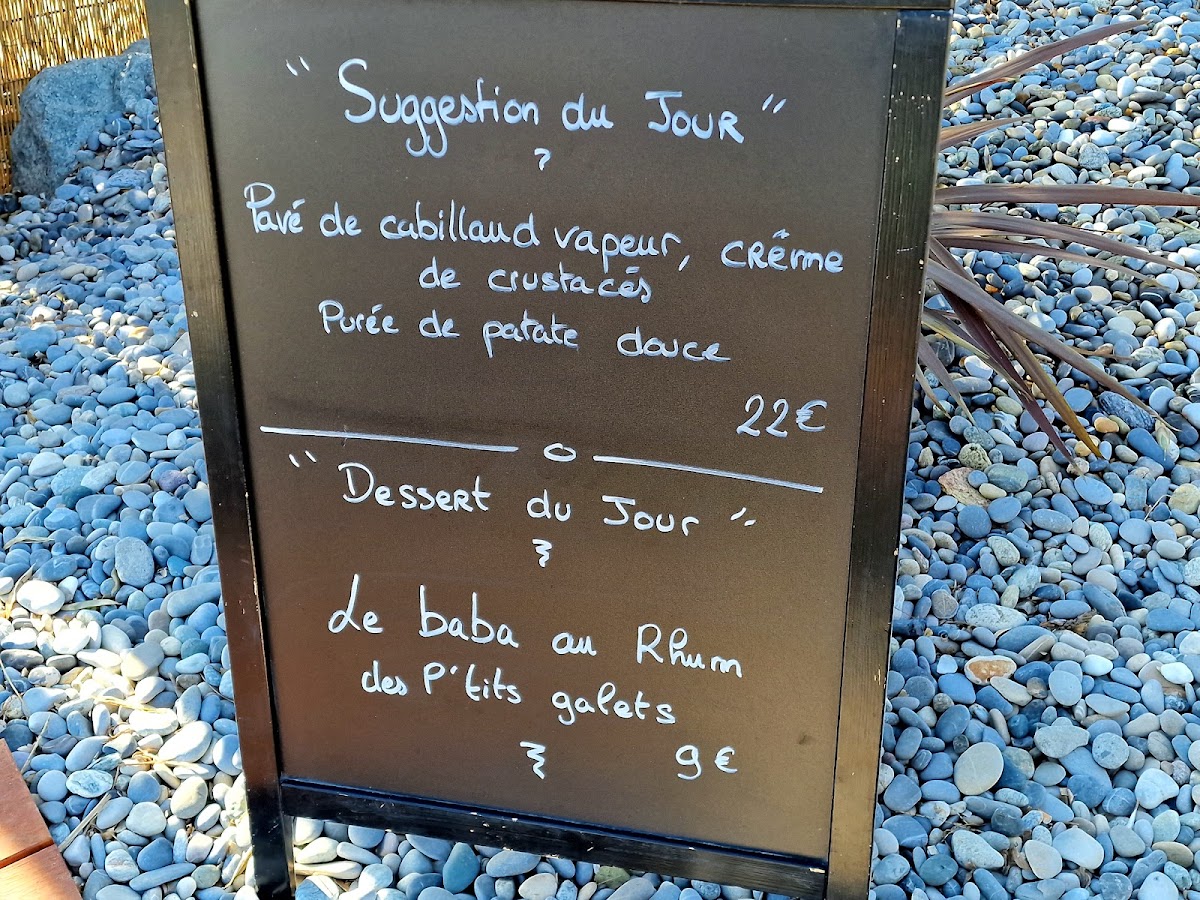 "Suggestion du Jour"
Pavé de cabillaud vapeur, crême
de crustacés
Purée de patate douce
22€
"Dessert du Jour"
Le baba au Rhum
des P'tits galets
9€